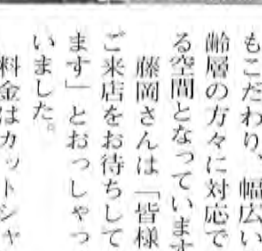 もこだわり、幅広い
齢層の方々に対応で
る空間となっています
藤岡さんは「皆様
ご来店をお待ちして
ます」とおっしゃっ
いました。
料金はカットシャ